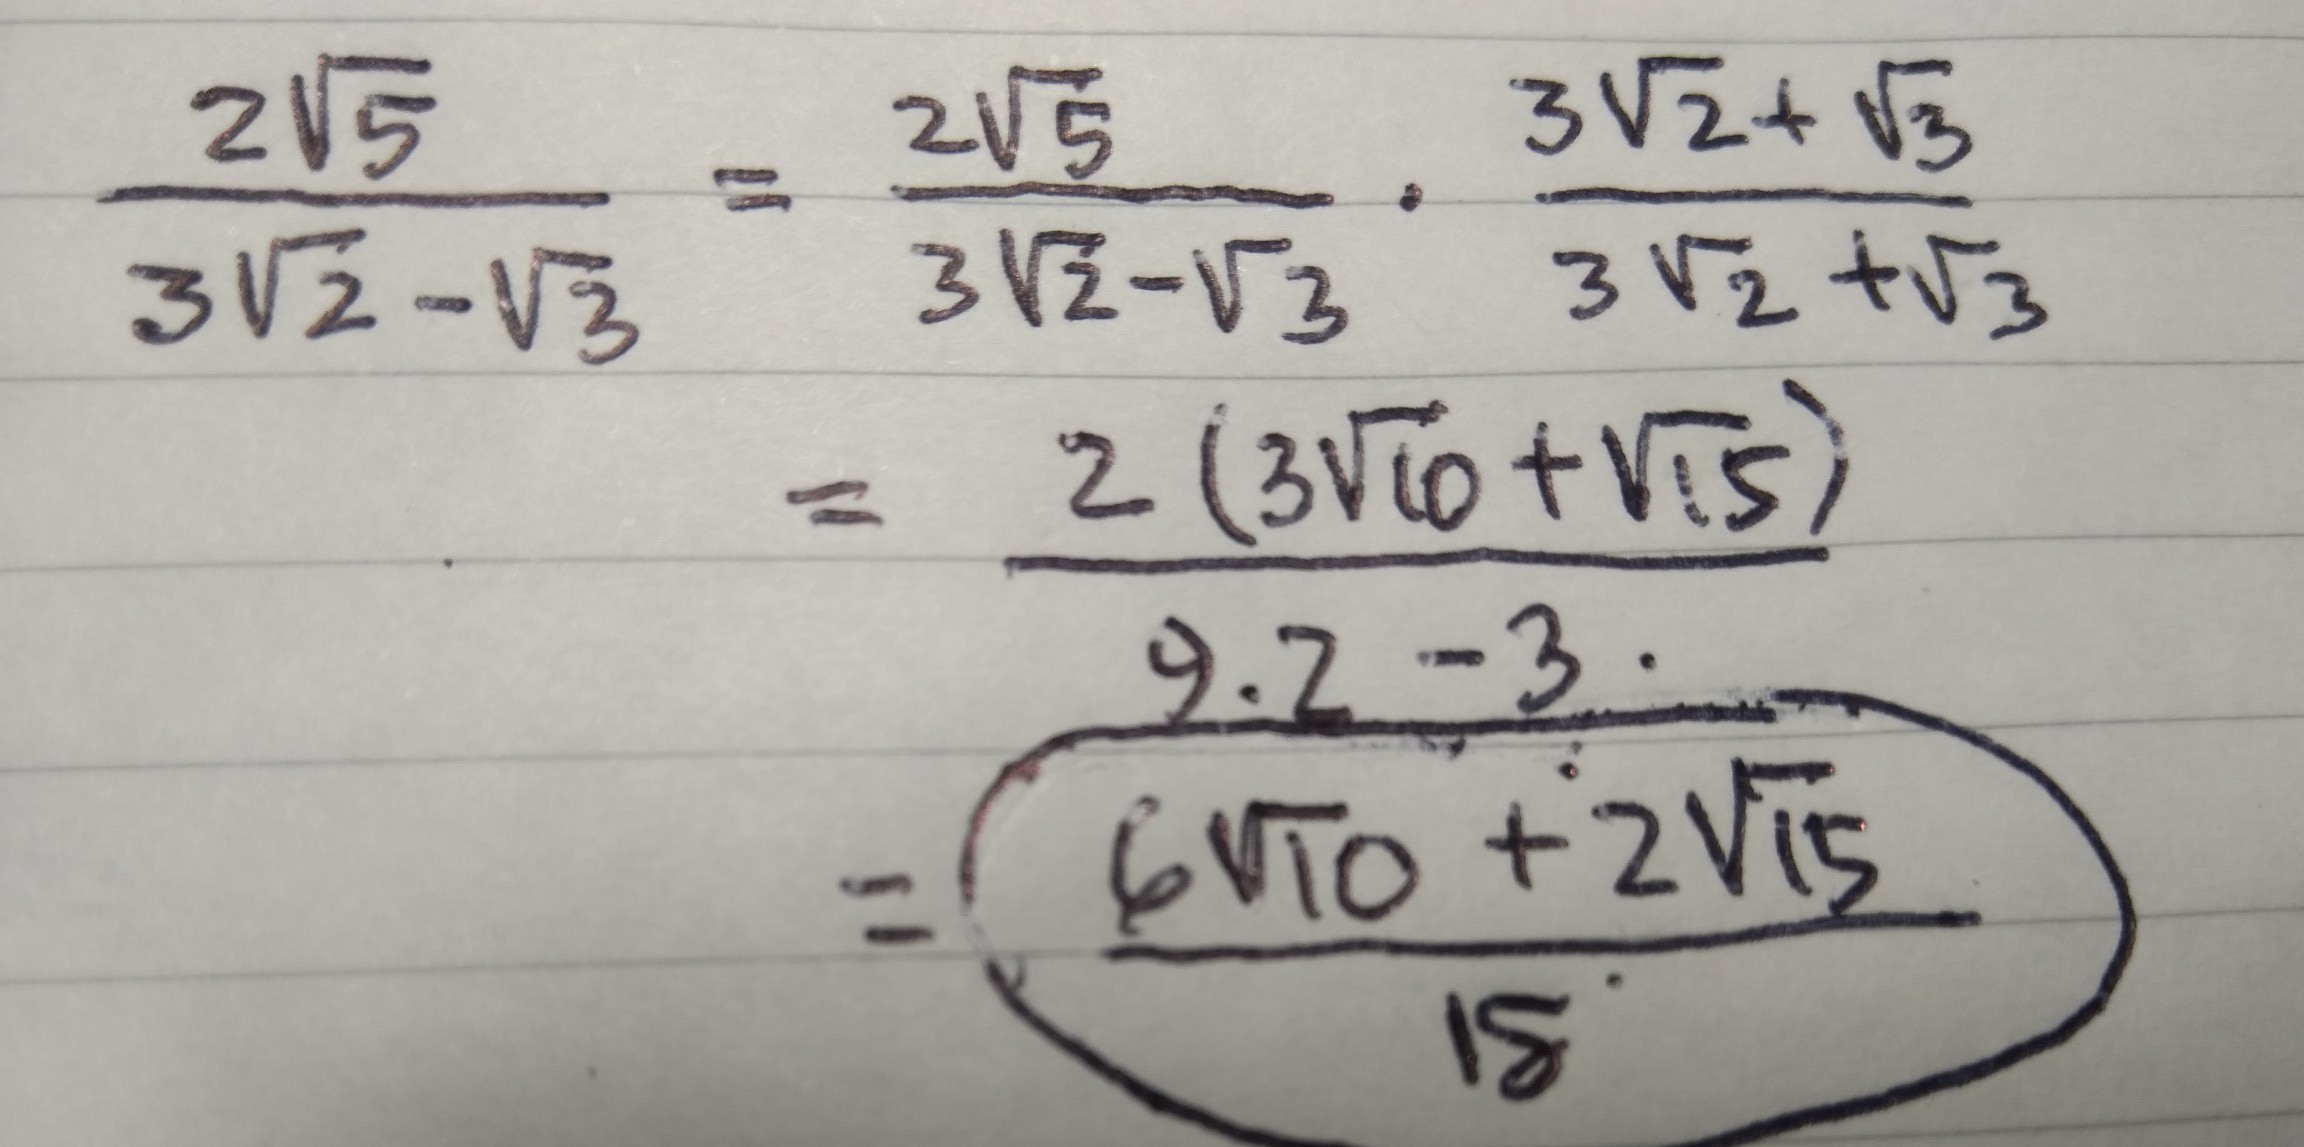 2√5 / (3√2 - √3) = 2√5 / (3√2 - √3) · (3√2 + √3) / (3√2 + √3)
= 2 (3√10 + √15) / (9·2 - 3)
= (6√10 + 2√15) / 15